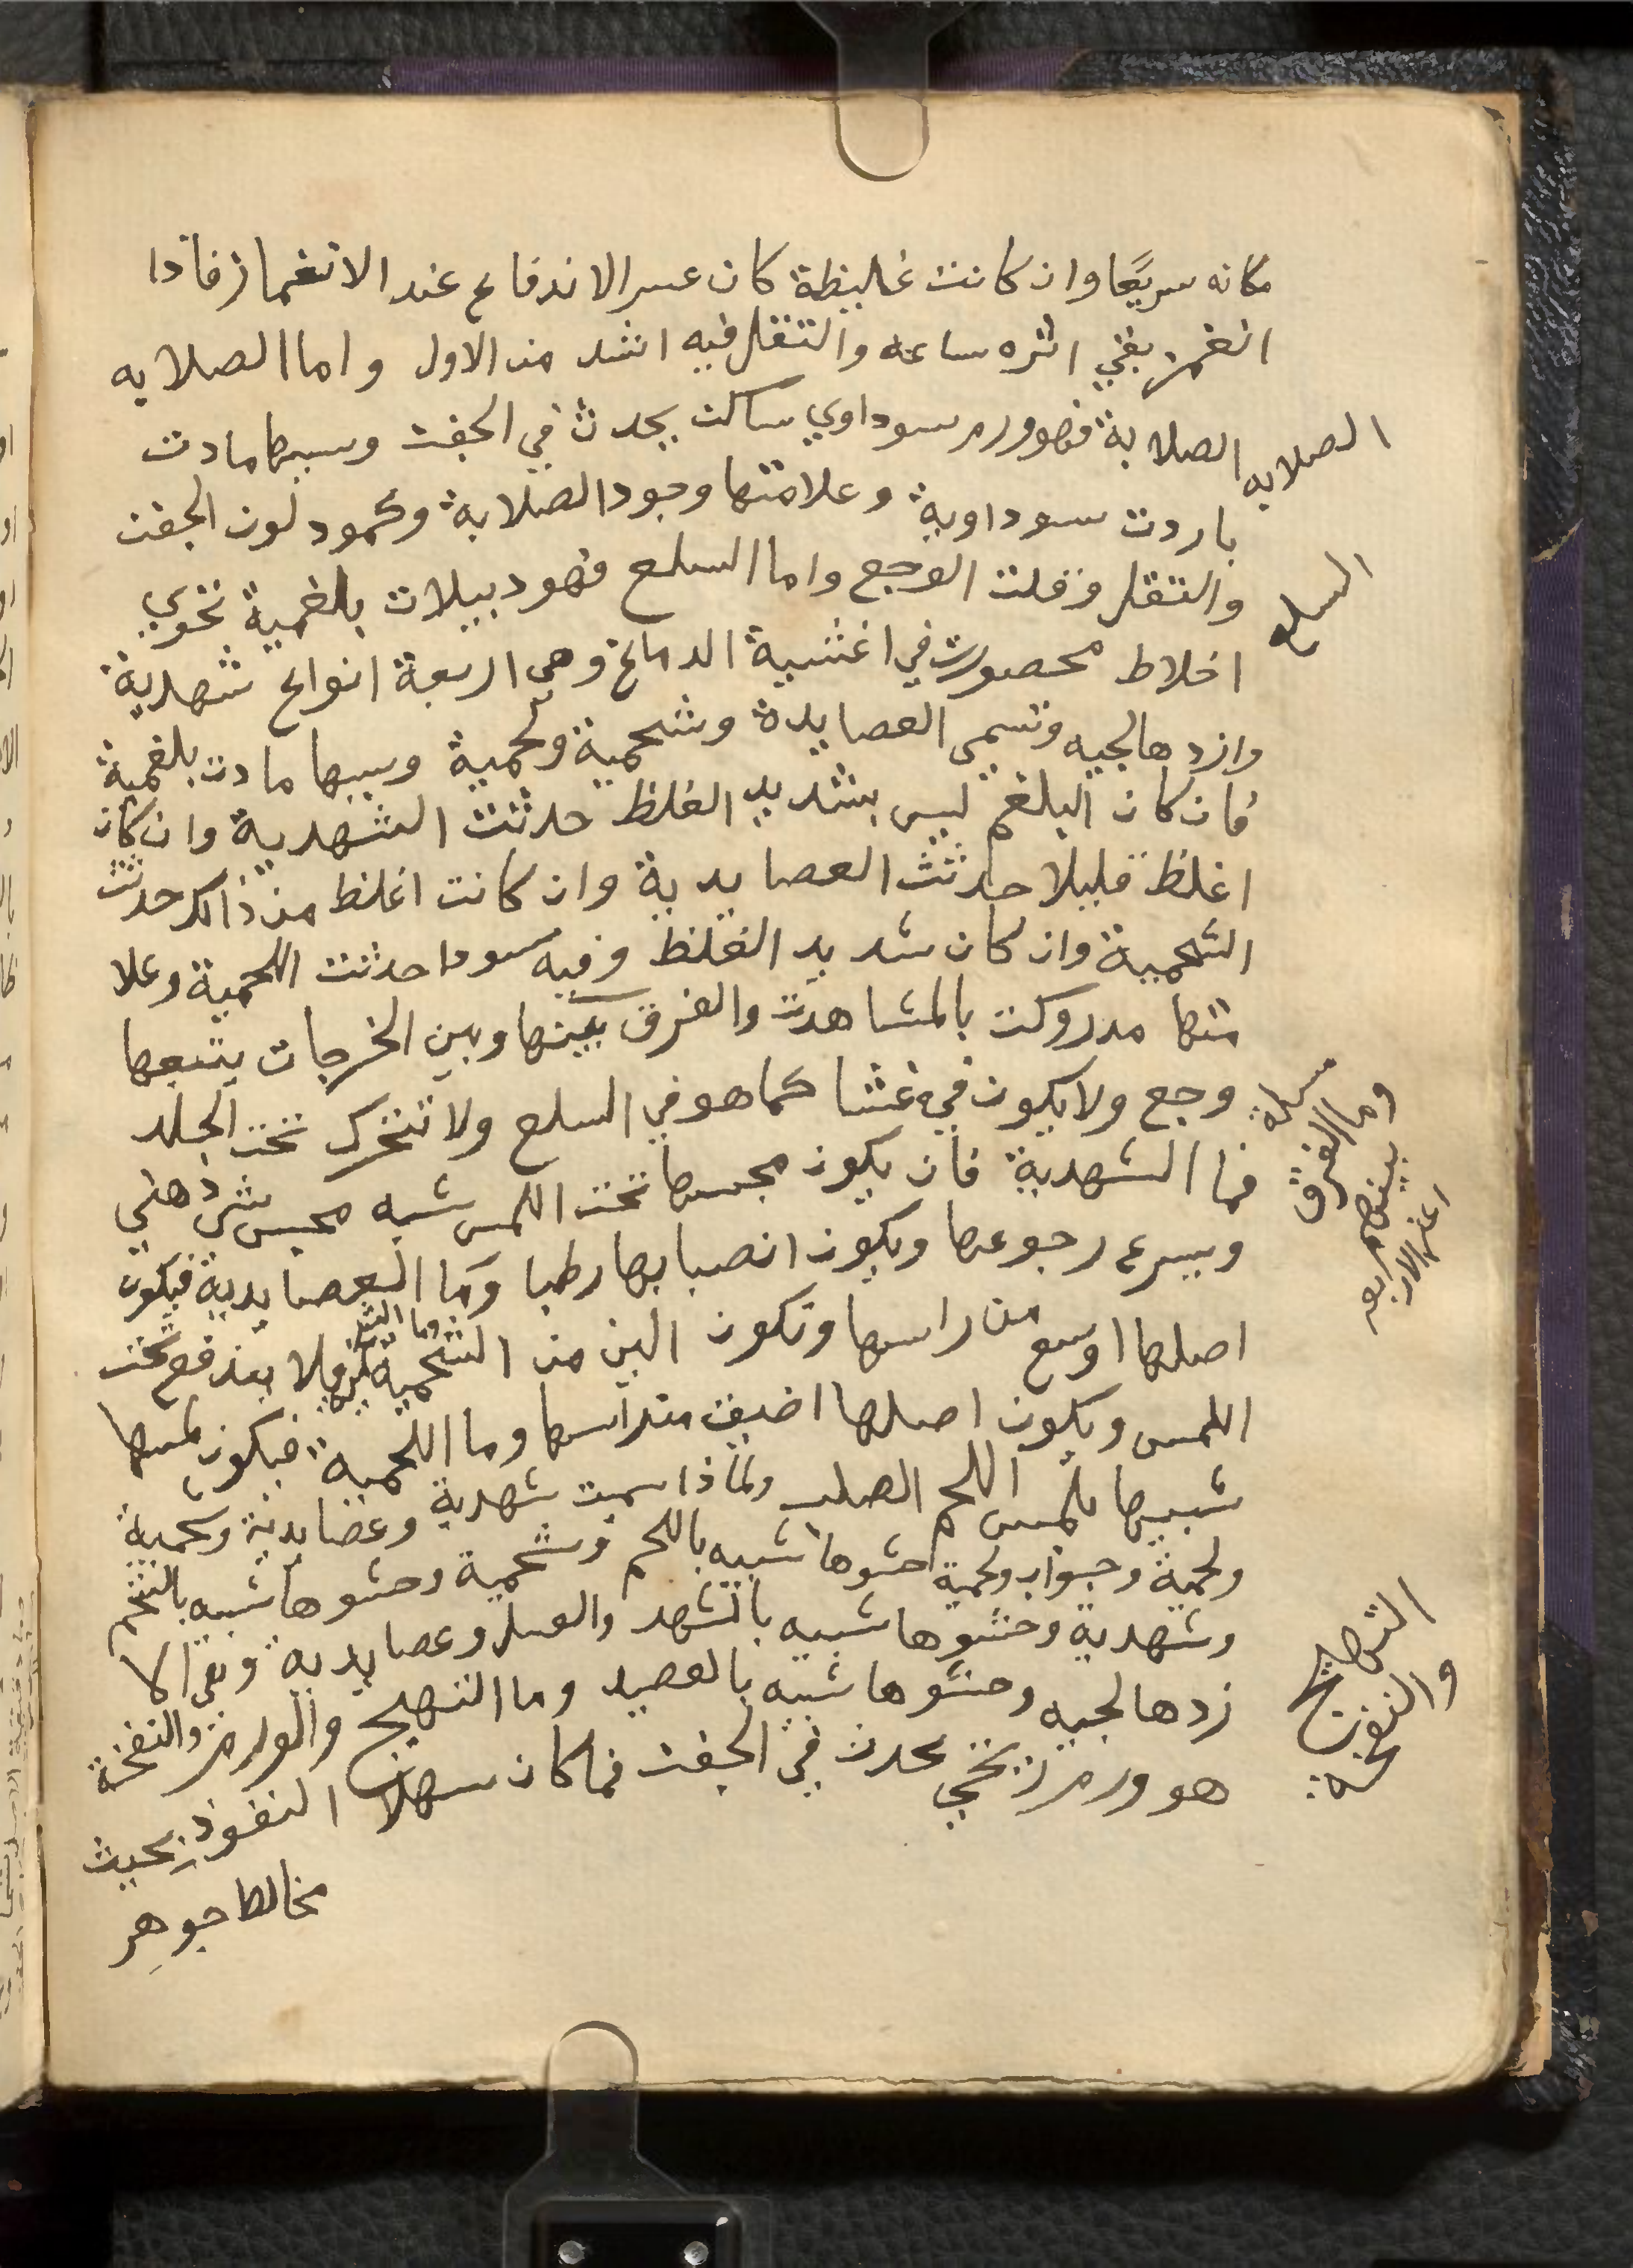 مكانه سريعًا وان كانت غليظة كان عسر الاندفاع عند الانغماز فاذا
انغمز بقي اثره ساعه والتقل فيه اشد من الاول واما الصلابه
الصلابه
الصلابة فهو ورم سوداوي ساكت يحدث في الجفت وسببها مادت
باردت سوداوية وعلامتها وجود الصلابة وكمود لون الجفت
السلع
والتقل وقلت الوجع واما السلع فهو دبيلات بلغمية تحوي
اخلاط محصورت في اغشبية الدماغ وهي اربعة انواع شهدية
وازدهالجيه وتسمى العصايدة وشحمية ولحمية وسببها مادت بلغمية
فان كان البلغم ليس بشديد الغلظ حدثت الشهدية وان كان
اغلظ قليلا حدثت العصايدية وان كانت اغلظ من ذالك حدثت
الشحمية وان كان شديد الغلظ وفيه سودا حدثت اللحمية وعلا
متها مدروكت بالمشاهدت والفرق بينها وبين الخرجات يتبعها
وجع ولا يكون في غشا كما هو في السلع ولا تتحرك تحت الجلد
مسلة وما الفرق
بينهم
اعني الاربعه
فما الشهدية فان يكون مجسها تحت اللمس شبه مجس شي دهني
ويسرع رجوعها ويكون انصبابها رطبا وما العصايدية فيكون
اصلها اوسع من راسها وتكون الين من الشحمية وما الشحمية فلا يندفع تحت
اللمس ويكون اصلها اضيق من راسها وما اللحمية فيكون لمسها
شبيها بلمس اللحم الصلب ولماذا سميت شهدية وعصايدية وشحمية
ولحمية وجواب ولحمية حشوها شبيه باللحم وشحمية وحشوها شبيه بالشحم
وشهدية وحشوها شبيه بالشهد والعسل وعصايدية وتقرا الا
زدهالجيه وحشوها شبيه بالعصيد وما التهيج والورم والنفخة
التهايج
والنفخة
هو ورم ريحي يحدث في الجفت فما كان سهلا النفوذ بحيث
مخالطا جوهر